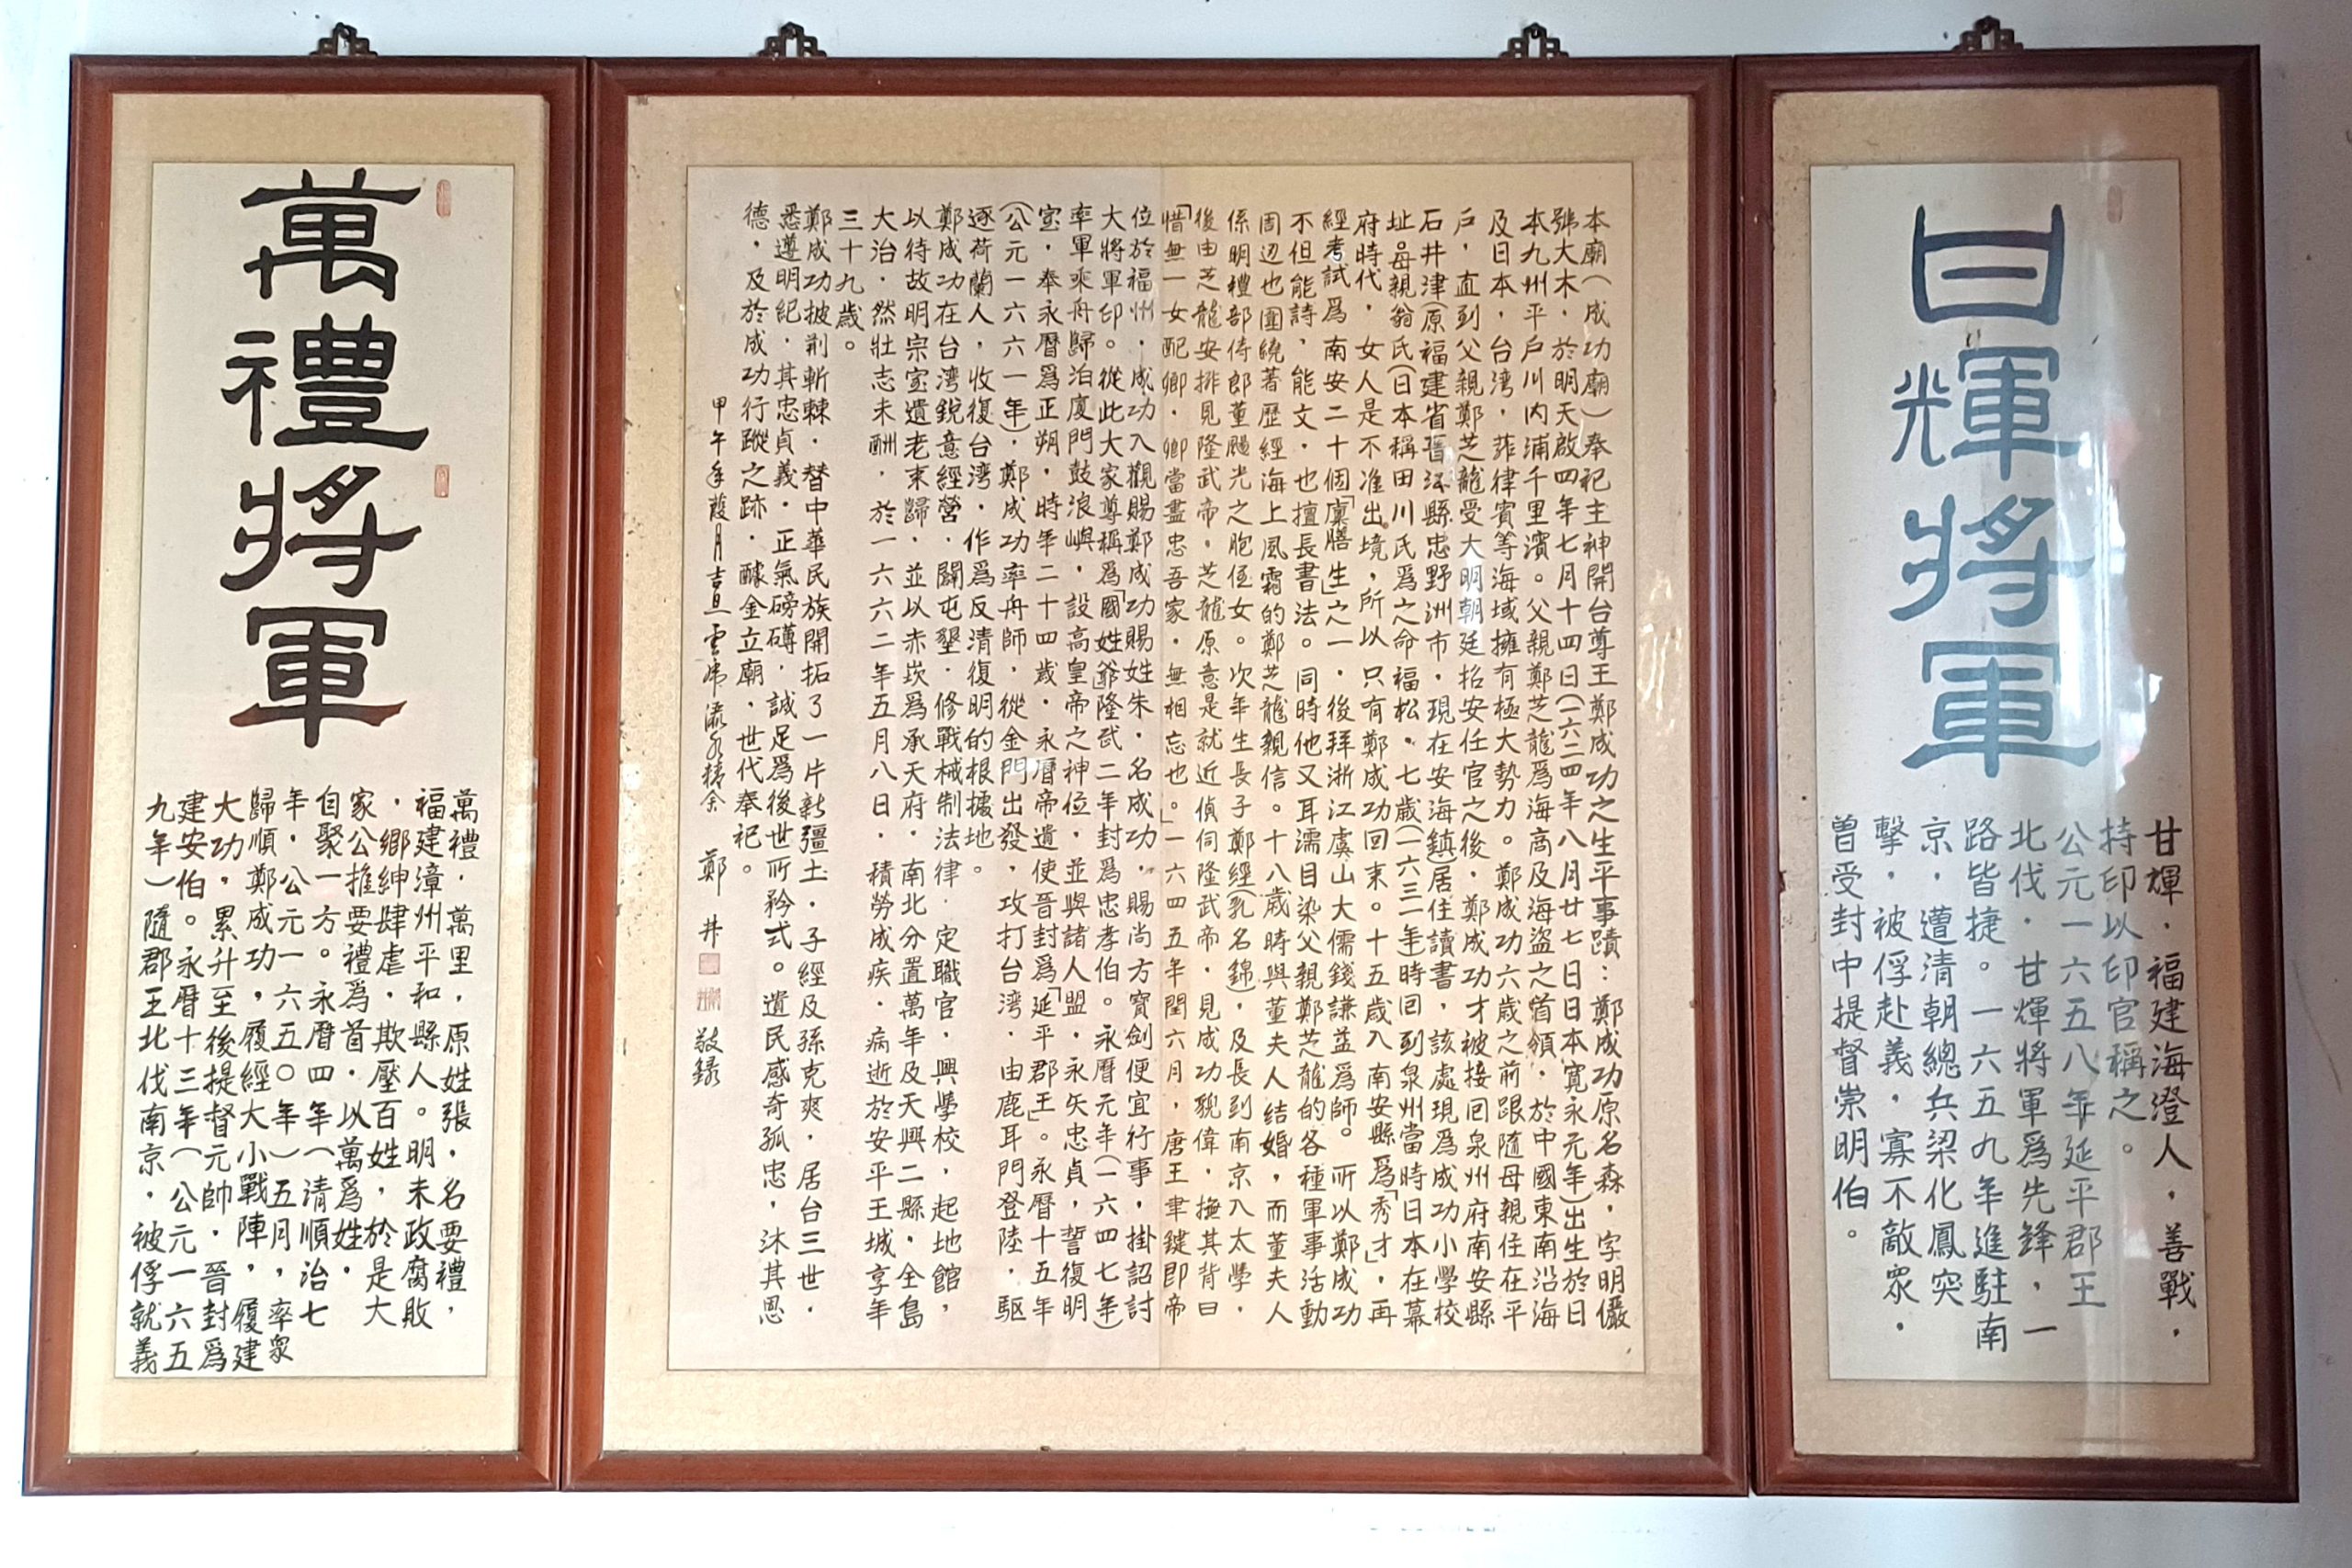 甘輝將軍
甘輝．福建海澄人，善戰，
持印以印官稱之。
公元一六五八年延平郡王
北伐．甘輝將軍爲先鋒，一
路皆捷。一六五九年進駐南
京，遭清朝總兵梁化鳳突
擊，被俘赴義，寡不敵眾．
曾受封中提督崇明伯。
本廟（成功廟）奉祀主神開台尊王鄭成功之生平事蹟：鄭成功原名森，字明儼
號大木．於明天啟四年七月十四日（一六二四年八月廿七日日本寬永元年）出生於日
本九州平戶川內浦千里濱。父親鄭芝龍爲海商及海盜之首領．於中國東南沿海
及日本，台湾，菲律賓等海域擁有極大勢力。鄭成功六歲之前跟隨母親住在平
戶，直到父親鄭芝龍受大明朝廷招安任官之後，鄭成功才被接回泉州府南安縣
石井津（原福建省晋江縣忠野洲市，現在安海鎮）居住讀書，該處現爲成功小學校
址母親翁氏（日本稱田川氏爲之命福松。七歲（一六三一年）時回到泉州當時日本在幕
府時代，女人是不准出境，所以只有鄭成功回來。十五歲入南安縣爲「秀才」，再
經考試爲南安二十個「廩膳生」之一．後拜浙江虞山大儒錢謙益爲師。所以鄭成功
不但能詩，能文．也擅長書法。同時他又耳濡目染父親鄭芝龍的各種軍事活動
周边也圍繞著歷經海上風霜的鄭芝龍親信。十八歲時與董夫人結婚，而董夫人
係明禮部侍郎董颺光之胞侄女。次年生長子鄭經（乳名錦），及長到南京入太學，
後由芝龍安排見隆武帝。芝龍原意是就近偵伺隆武帝．見成功貌偉，撫其背曰
「惜無一女配卿．卿當盡忠吾家．無相忘也。」一六四五年閏六月，唐王聿鍵即帝
位於福州．成功入觀賜鄭成功賜姓朱．名成功．賜尚方寶劍便宜行事，掛詔討
大將軍印。從此大家尊稱爲「國姓爺」隆武二年封爲忠孝伯。永曆元年（一六四七年）
率軍乘舟歸泊廈門鼓浪嶼，設高皇帝之神位．並與諸人盟．永矢忠貞，誓復明
室．奉永曆爲正朔．時年二十四歲．永曆帝遺使晉封爲「延平郡王」。永曆十五年
（公元一六六一年）．鄭成功率舟師．從金門出發．攻打台湾．由鹿耳門登陸．驅
逐荷蘭人，收復台湾．作爲反清復明的根據地。
鄭成功在台湾銳意經營．闢屯墾．修戰械制法律．定職官．興學校，起地館，
以待故明宗室遺老來歸．並以赤崁爲承天府．南北分置萬年及天興二縣．全島
大治．然壯志未酬．於一六六二年五月八日．積勞成疾．病逝於安平王城享年
三十九歲。
鄭成功披荆斬棘．替中華民族開拓了一片新疆土．子經及孫克爽．居台三世．
悉遵明紀．其忠貞義．正氣磅礡．誠足爲後世所矜式。遺民感奇孤忠，沐其恩
德．及於成功行蹤之跡．醵金立廟．世代奉祀。
甲午年葭月吉旦 鄭井敬錄
萬禮將軍
萬禮．萬里，原姓張，名要禮，
福建漳州平和縣人。明末政腐敗
．鄉紳肆虐．欺壓百姓，於是大
家公推要禮爲首．以萬爲姓．
自聚一方。永曆四年（清順治七
年，公元一六五〇年）五月，率眾
歸順鄭成功，履經大小戰陣，履建
大功，累升至後提督元帥．晉封爲
建安伯。永曆十三年（公元一六五
九年）隨郡王北伐南京．被俘就義